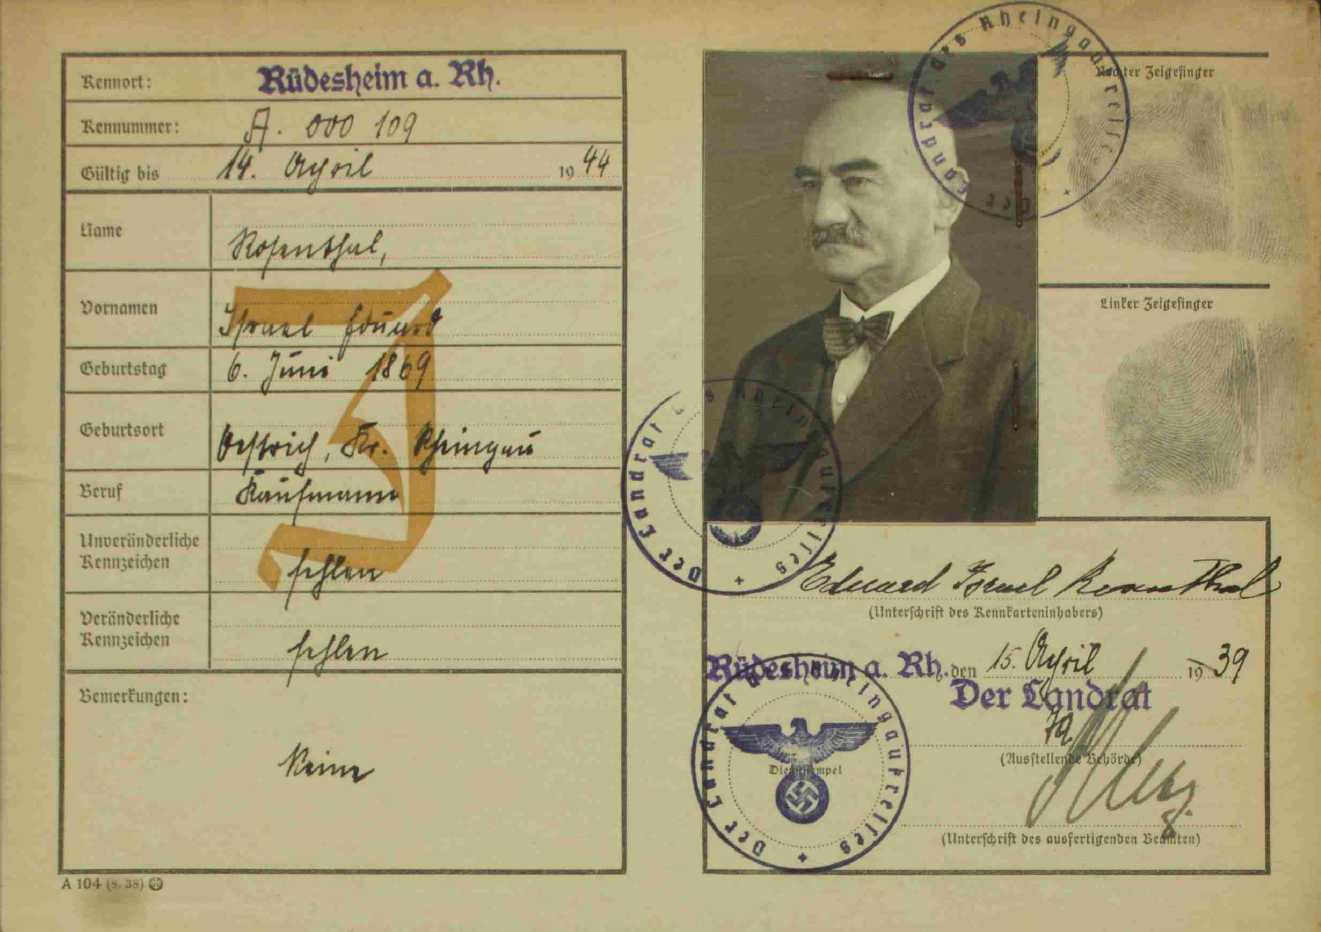 Kennort: Rüdesheim a. Rh.
Kennummer: A. 000 109
Gültig bis 14. April 1944
Name Rosenthal,
Vornamen Israel Eduard
Geburtstag 6. Juni 1869
Geburtsort Oestrich, Kr. Rheingau
Beruf Kaufmann
Unveränderliche
Kennzeichen fehlen
Veränderliche
Kennzeichen fehlen
Bemerkungen:
Keine
A 104 (8. 38)
J
Der Landrat des Rheingaukreises
Rechter Zeigefinger
Linker Zeigefinger
Der Landrat des Rheingaukreises
Eduard Israel Rosenthal
(Unterschrift des Kennkarteninhabers)
Rüdesheim a. Rh. den 15. April 1939
Der Landrat
(Ausstellende Behörde)
Dienststempel
Der Landrat des Rheingaukreises
(Unterschrift des ausfertigenden Beamten)